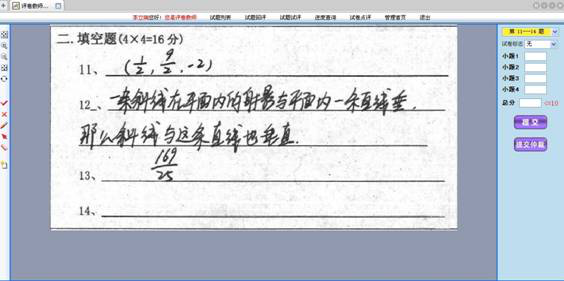 评卷教师...
李立梅您好! 您是评卷教师 试题列表 试题回评 试题试评 进度查询 试卷点评 管理首页 退出
二. 填空题(4×4=16分)
11、(1/2, 9/2, -2)
12、一条斜线在平面内的射影与平面内一条直线垂.
那么斜线与这条直线也垂直.
13、169/25
14、
第 11--14 题
试卷标志 无
小题1
小题2
小题3
小题4
总分 <=10
提 交
提交仲裁